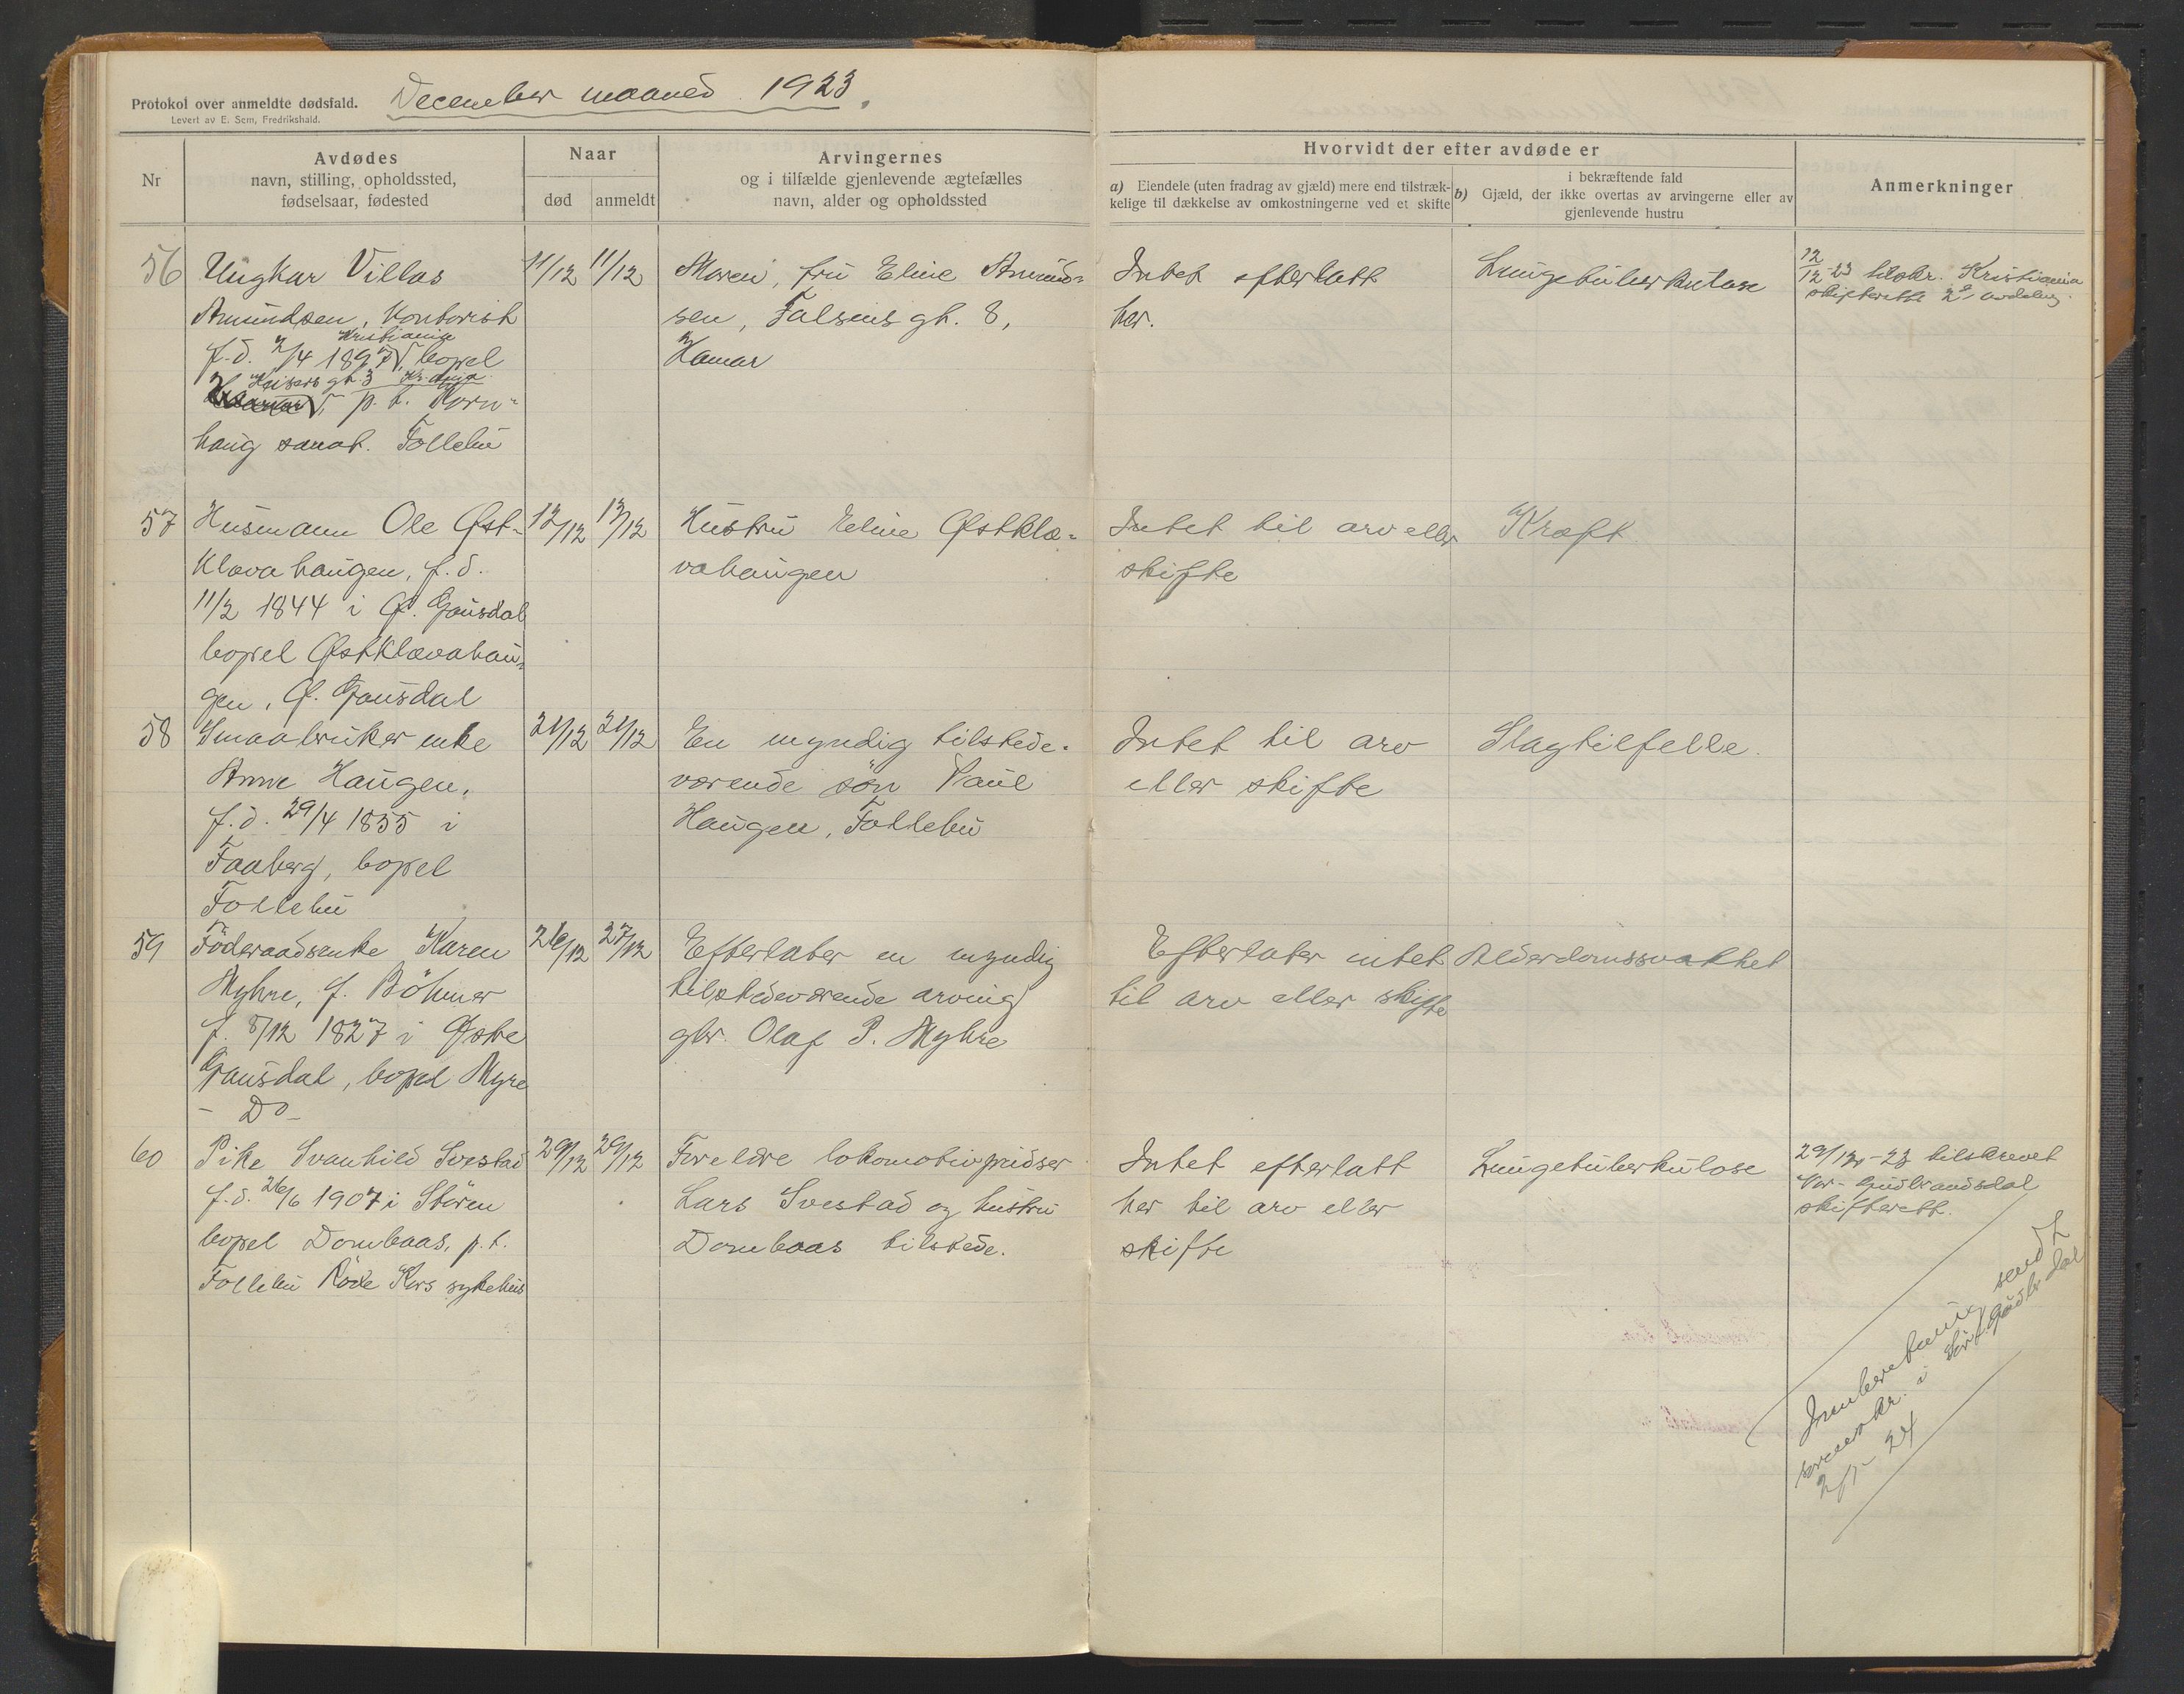 Protokol over anmeldte dødsfald. December maaned 1923.
Levert av E. Sem, Fredrikshald.
Nr
Avdødes
navn, stilling, opholdssted,
fødselsaar, fødested
Naar
død
anmeldt
Arvingernes
og i tilfælde gjenlevende ægtefælles
navn, alder og opholdssted
Hvorvidt der efter avdøde er
a) Eiendele (uten fradrag av gjæld) mere end tilstræk-
kelige til dækkelse av omkostningerne ved et skifte
i bekræftende fald
b) Gjæld, der ikke overtas av arvingerne eller av
gjenlevende hustru
Anmerkninger
56
Ungkar Villas
Amundsen, Kontorist
Kristiania
f.d. 2/4 1897, bopel
gt. 3 Kr.ania
p.t. Korn-
haug sanat. Follebu
11/12
11/12
Moren, fru Eline Amund-
sen, Falsens gt. 8,
Hamar
Intet efterlatt
her.
Lungetuberkulose
12/12-23 tilskr. Kristiania
skifterett 2den avdeling.
57
Husmann Ole Øst-
klævahaugen, f.d.
11/2 1844 i Ø. Gausdal
bopel Østklævahau-
gen, Ø. Gausdal
12/12
13/12
Hustru Eline Østklæ-
vahaugen
Intet til arv eller
skifte
Kræft
58
Smaabruker enke
Anne Haugen,
f.d. 29/4 1855 i
Faaberg, bopel
Follebu
21/12
21/12
En myndig tilstede-
værende søn Paul
Haugen, Follebu
Intet til arv
eller skifte
Slagtilfelle.
59
Föderaadsenke Karen
Myhre, f. Böhmer
f. 8/12 1827 i Østre
Gausdal, bopel Myre
- Do -
26/12
27/12
Efterlater en myndig
tilstedeværende arving
gbr. Olaf P. Myhre
Efterlater intet
til arv eller skifte
Alderdomssvakhet
60
Pike Svanhild Svestad
f.d. 26/6 1907 i Stören
bopel Dombaas, p.t.
Follebu Röde Kors sykehus
29/12
29/12
Foreldre lokomotivpudser
Lars Svestad og hustru
Dombaas tilstede.
Intet efterlatt
her til arv eller
skifte
Lungetuberkulose
29/12-23 tilskrevet
Nor-Gudbrandsdal
skifterett.
Innberetning sendt
sorenskr. i Sør-Gudbr.dal
2/1-24